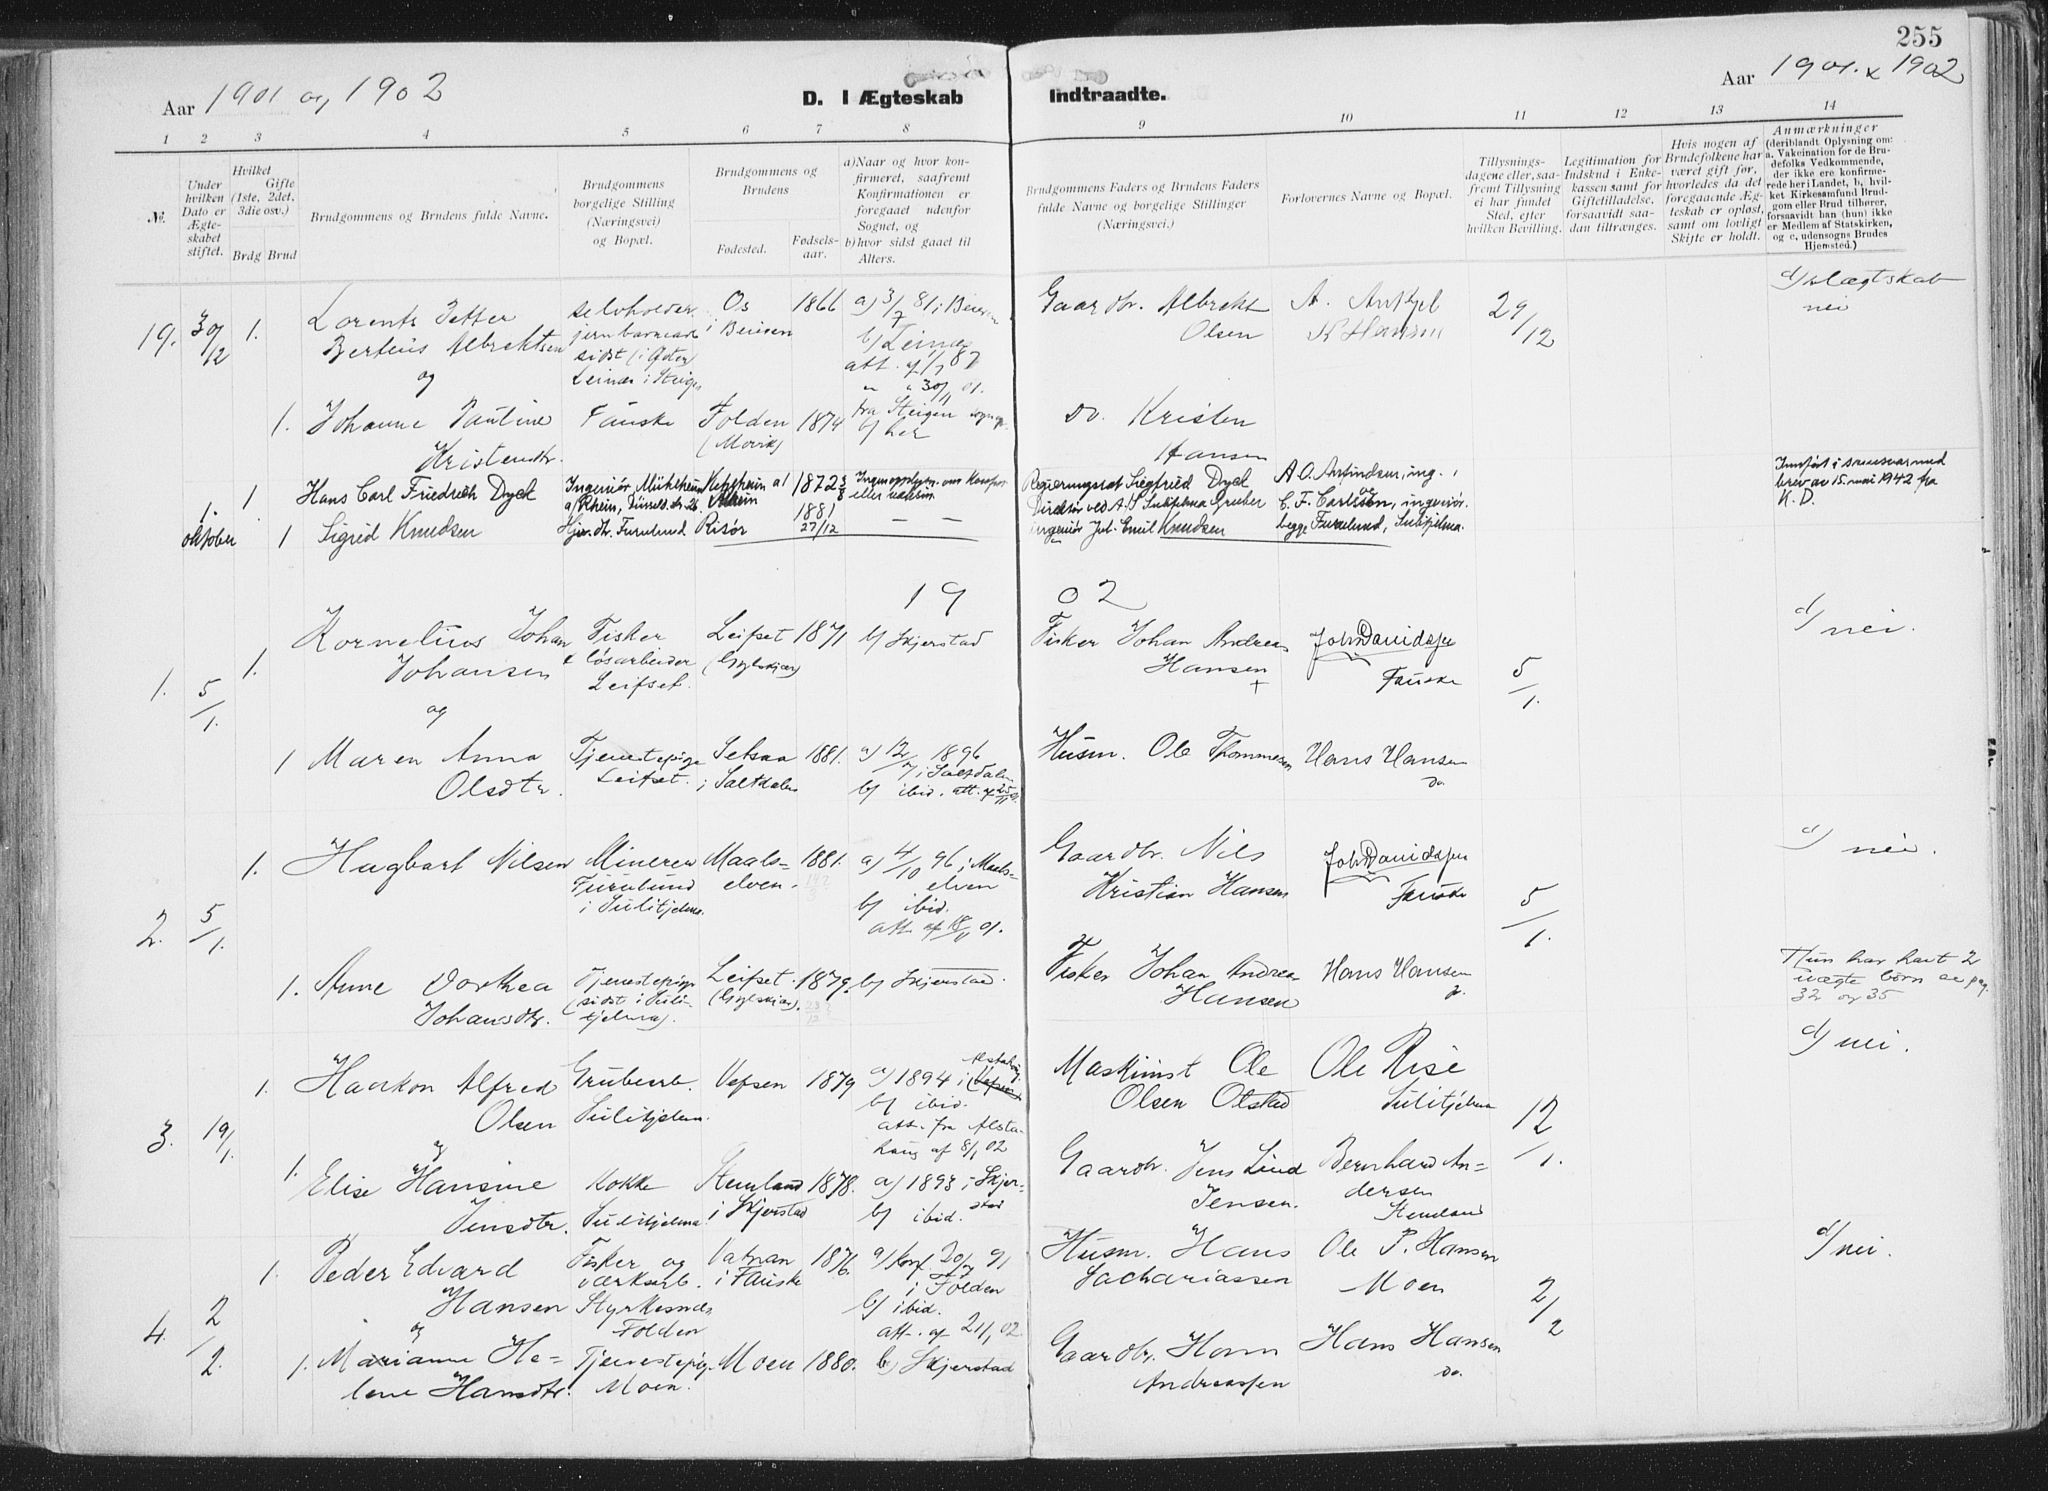 255
Aar 1901 og 1902
D. I Ægteskab
Indtraadte.
Aar 1901 & 1902
1 2 3 4 5 6 7 8 9 10 11 12 13 14
No.
Under hvilken Dato er Ægteskabet stiftet.
Hvilket Gifte (1ste, 2det, 3die osv.)
Brdg Brud
Brudgommens og Brudens fulde Navne.
Brudgommens borgelige Stilling (Næringsvei) og Bopæl.
Brudgommens og Brudens
Fødested.
Fødselsaar.
a) Naar og hvor konfirmeret, saafremt Konfirmationen er foregaaet udenfor Sognet, og
b) hvor sidst gaaet til Alters.
Brudgommens Faders og Brudens Faders fulde Navne og borgelige Stillinger (Næringsvei.)
Forlovernes Navne og Bopæl.
Tillysningsdagene eller, saafremt Tillysning ei har fundet Sted, efter hvilken Bevilling.
Legitimation for Indskud i Enkekassen samt for Giftetilladelse, forsaavidt saadan tiltrænges.
Hvis nogen af Brudefolkene har været gift før, hvorledes da det foregaaende Ægteskab er opløst, samt om lovligt Skifte er holdt.
Anmærkninger (deriblandt Oplysning om: a. Vakcination for de Brudefolks Vedkommende, der ikke ere konfirmerede her i Landet, b, hvilket Kirkesamfund Brudgom eller Brud tilhører, forsaavidt han (hun) ikke er Medlem af Statskirken, og c, udensogns Brudes Hjemsted.)
19. 30/12 1. Lorents Petter Berteus Albrektsen
og
selvholder, sidst (i Leines i Steigen
Os i Beieren
1866
a) 3/7 81 i Beieren
b) Leines
Gaardbr. Albrekt Olsen
29/12
d) slægtskab nei
1. Johanne Pauline Kristensdtr.
Fauske
Folden
1874
fra Steigen
b) her
Do. Kristen Hansen
1. oktober
1 Hans Carl Friedrich Dyck
Ingeniör, Mühlheim a/Rhein
1872
Regierungsrat Siegfried Dyck
C. F. Carlson, ingeniør. begge Furulund, Sulitjelma.
Innført i brev av 15. mai 1942 fra K. D.
1 Sigrid Knudsen
Furulund
Risör
1881 27/12
— —
ingeniör Joh. Emil Knudsen
19 02
1. 5/1. 1. Kornelius Johan Johansen
og
Fisker & løsarbeider Leifset.
Leifset
1871
b) Skjerstad
Fisker Johan Andreas Hansen +
John Davidsen Fauske
5/1.
d) nei.
1 Maren Anna Olsdtr.
Tjenestepige Leifset.
Setsaa i Saltdalen
1881.
a) 12/7 1896 i Saltdalen
b) ibid. att. af 25/11 01.
Husm. Ole Thommesen
Hans Hansen do.
2. 5/1. 1. Hugbart Nilsen
Minerer Furulund i Sulitjelma.
Maalselven.
1881.
a) 4/10 96 i Maalselven
b) ibid.
Gaardbr. Nils Kristian Hansen
John Davidsen Fauske
5/1.
d) nei.
1. Anne Dorthea Johansdtr.
Tjenestepige (sidst i Sulitjelma).
Leifset.
1879.
b) Skjerstad.
Fisker Johan Andreas Hansen
Hans Hansen
Hun har havt 2 uægte børn se pag. 32 og 35
3. 19/1. 1. Haakon Alfred Olsen
og
Grubearb. Sulitjelma.
Vefsen
1879
a) 1894 i Alstahaug
b) ibid.
att. fra Alstahaug af 8/1 02
Maskinist Ole Olsen Olstad
Ole Rise Sulitjelma
12/1.
d) nei.
1. Elise Hansine Jensdtr.
Kokke Sulitjelma.
Stemland i Skjerstad
1878.
a) 1893 i Skjerstad
b) ibid.
Gaardbr. Jens Lind Jensen.
Bernhard Andersen Stemland
4. 2/2. 1. Peder Edvard Hansen
og
Fisker og værksarb. Styrkesnes Folden
Vatnan i Fauske
1876.
a) konf. 20/9 91 i Folden
b) ibid.
att. af 21/1 02.
Husm. Hans Zachariassen
Ole P. Hansen Moen
2/2
d) nei.
1. Marianne Helene Hansdtr.
Tjenestepige Moen.
Moen
1880.
b) Skjerstad
Gaardbr. Hans Andreassen
Hans Hansen do.